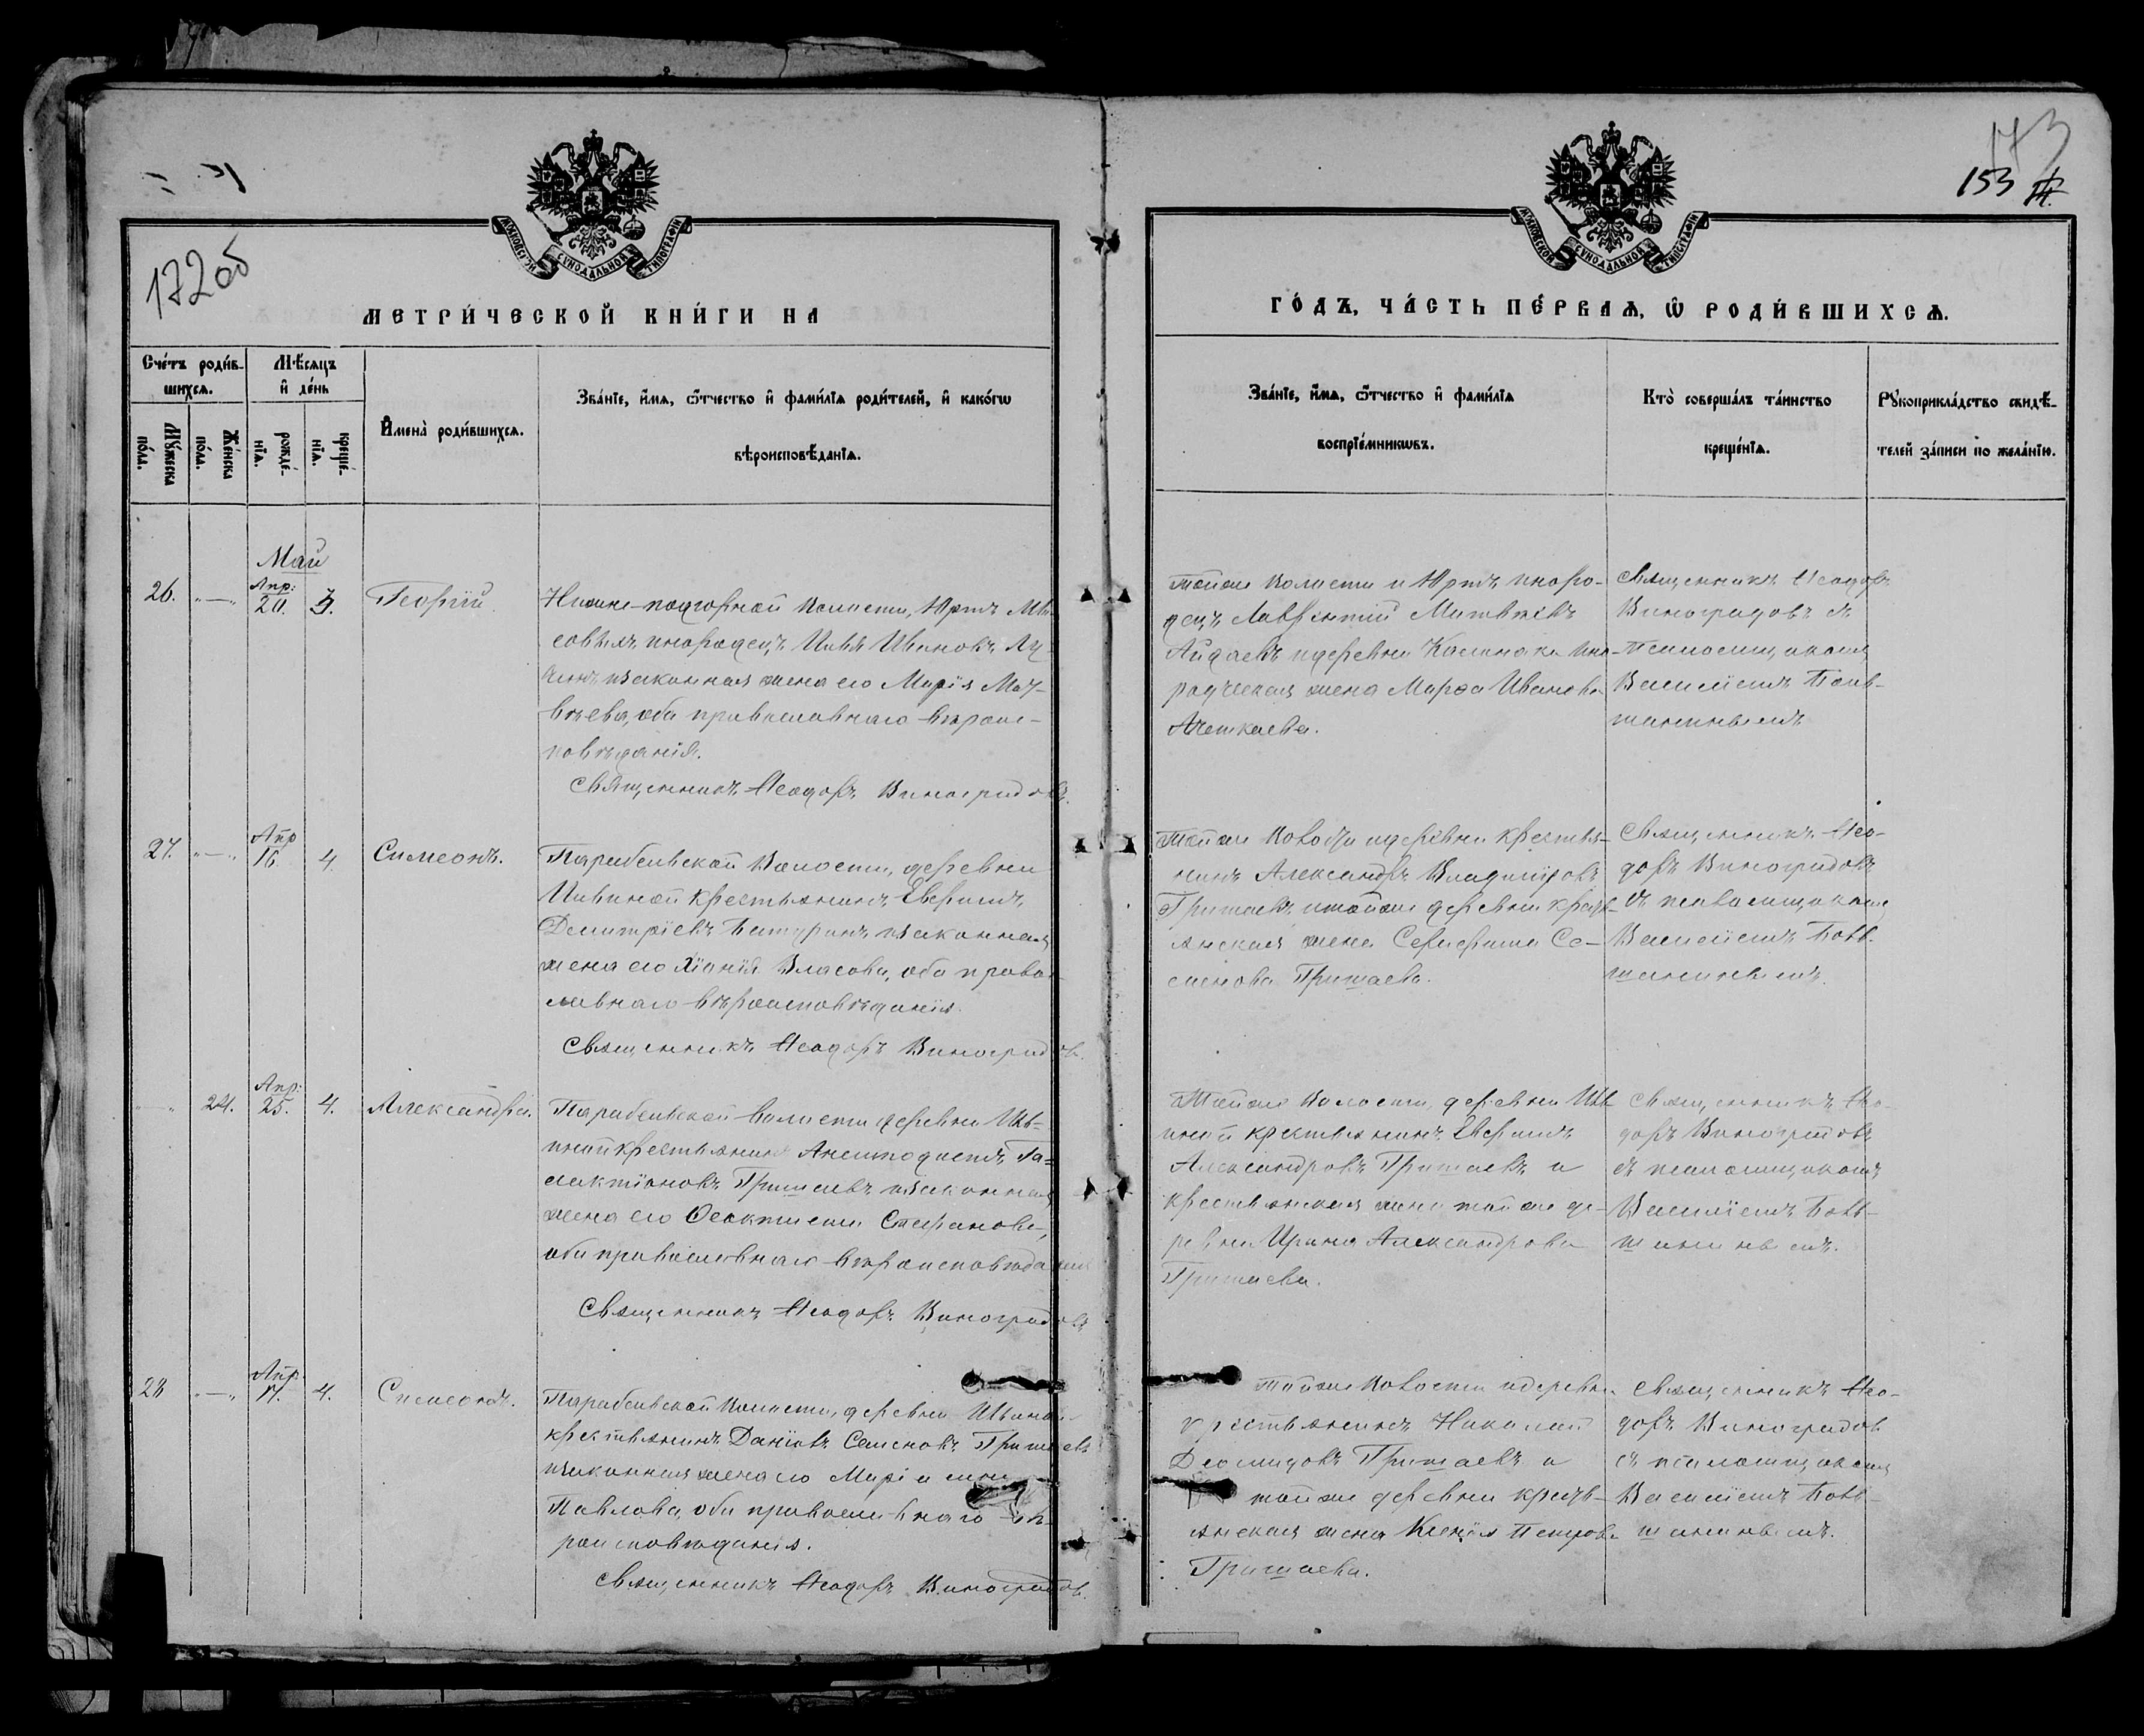 172об
153
173
МОСКОВСКОЙ СѴНОДАЛЬНОЙ ТИПОГРАФІИ
МОСКОВСКОЙ СѴНОДАЛЬНОЙ ТИПОГРАФІИ
МЕТРИ́ЧЕСКОЙ КНИ́ГИ НА
ГО́ДЪ, ЧА́СТЬ ПЕ́РВАѦ, Ѡ҆ РОДИ́ВШИХСѦ.
Сче́тъ роди́в-
шихсѧ.
Мꙋ́жеска
по́ла.
Же́нска
по́ла.
Мѣ́сѧцъ
и҆ де́нь
рожде́-
нїѧ.
креще́-
нїѧ.
И҆мена̀ роди́вшихсѧ.
Зва́нїе, и҆́мѧ, ѻ҆́тчество и҆ фами́лїѧ роди́телей, и҆ како́гѡ
вѣроисповѣ́данїѧ.
Зва́нїе, и҆́мѧ, ѻ҆́тчество и҆ фами́лїѧ
воспрїе́мникѡвъ.
Кто̀ соверша́лъ та́инство
креще́нїѧ.
Рꙋкоприкла́дство свидѣ́-
телей за́писи по жела́нїю.
Май
26.
Апр:
20.
3.
Георгій.
Нижне-подгорной волости, Юртъ
инородецъ Илья Ивановъ
и законная жена его Марія
оба православнаго вѣроис-
повѣданія.
Священникъ Ѳеодоръ Виноградовъ.
тойже волости и Юртъ иноро-
децъ Лаврентій Матвѣевъ
Айдаевъ и деревни
жена Марѳа Иванова
священникъ Ѳеодоръ
Виноградовъ съ
псаломщикомъ
Василіемъ
27.
Апр
16.
4.
Симеонъ.
Парабельской Волости, деревни
крестьянинъ
Димитріевъ Батуринъ и законная
жена его Хіонія Власова, оба право-
славнаго вѣроисповѣданія.
Священникъ Ѳеодоръ Виноградовъ.
Тойже волости и деревни крестья-
нинъ Александръ Владиміровъ
Гришаевъ и тойже деревни кресть-
янская жена Се-
менова Гришаева.
Священникъ Ѳео-
доръ Виноградовъ
съ псаломщикомъ
Василіемъ
24.
Апр:
25.
4.
Александра.
Парабельской волости деревни
крестьянинъ Га-
лактіоновъ Гришаевъ и законная
жена его Ѳеоктиста Стефанова,
оба православнаго вѣроисповѣданія
Священникъ Ѳеодоръ Виноградовъ
Тойже волости, деревни
крестьянинъ
Александровъ Гришаевъ и
крестьянская жена той же де-
ревни Ирина Александрова
Гришаева.
Священникъ Ѳео-
доръ Виноградовъ
съ псаломщикомъ
Василіемъ
28
Апр
17.
4.
Симеонъ.
Парабельской волости, деревни
крестьянинъ Даніилъ Семеновъ Гришаевъ
и законная жена его Марія
Павлова, оба православнаго вѣ-
роисповѣданія.
Священникъ Ѳеодоръ Виноградовъ.
тойже волости и деревни
крестьянинъ Николай
Діомидовъ Гришаевъ и
тойже деревни кресть-
янская жена Ксенія Петрова
Гришаева.
Священникъ Ѳео-
доръ Виноградовъ
съ псаломщикомъ
Василіемъ